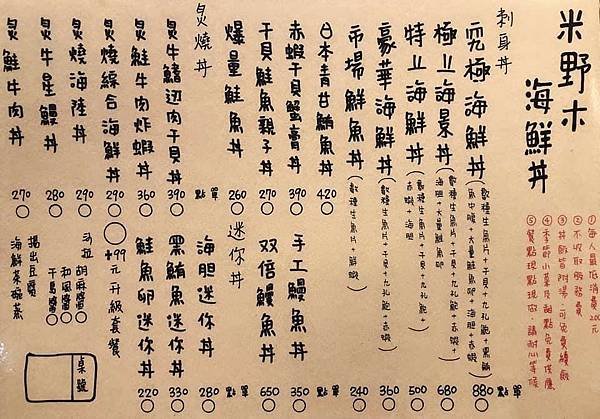 米野木
海鮮丼
①每人最低消費200元
②不收取服務費
③丼飯皆附湯，可免費續飯
④季節小菜及甜點免費供應
⑤餐點現點現做，請耐心等候
刺身丼
究極海鮮丼(數種生魚片+干貝+九孔鮑+黑鮪魚中腹+大量鮭魚卵+海膽+赤蝦) 880
極上海景丼(數種生魚片+干貝+九孔鮑+赤蝦+海膽+大量鮭魚卵) 680
特上海鮮丼(數種生魚片+干貝+九孔鮑+赤蝦+海膽) 500
豪華海鮮丼(數種生魚片+干貝+九孔鮑+赤蝦) 360
市場鮮魚丼(數種生魚片+鮮蝦) 240
點單
日本青甘鮪魚丼 420
赤蝦干貝蟹膏丼 390
干貝鮭魚親子丼 270
爆量鮭魚丼 260
點單
手工鰻魚丼 350
双倍鰻魚丼 650
點單
炙燒丼
炙牛鰭边肉干貝丼 390
炙鮭牛肉炸蝦丼 360
炙燒綜合海鮮丼 290
炙燒海陸丼 290
炙牛星鰻丼 280
炙鮭牛肉丼 270
迷你丼
海胆迷你丼 280
黑鮪魚迷你丼 330
鮭魚卵迷你丼 220
點單
+99元升級套餐
沙拉
胡麻醬
和風醬
千島醬
揚出豆腐
海鮮茶碗蒸
桌號